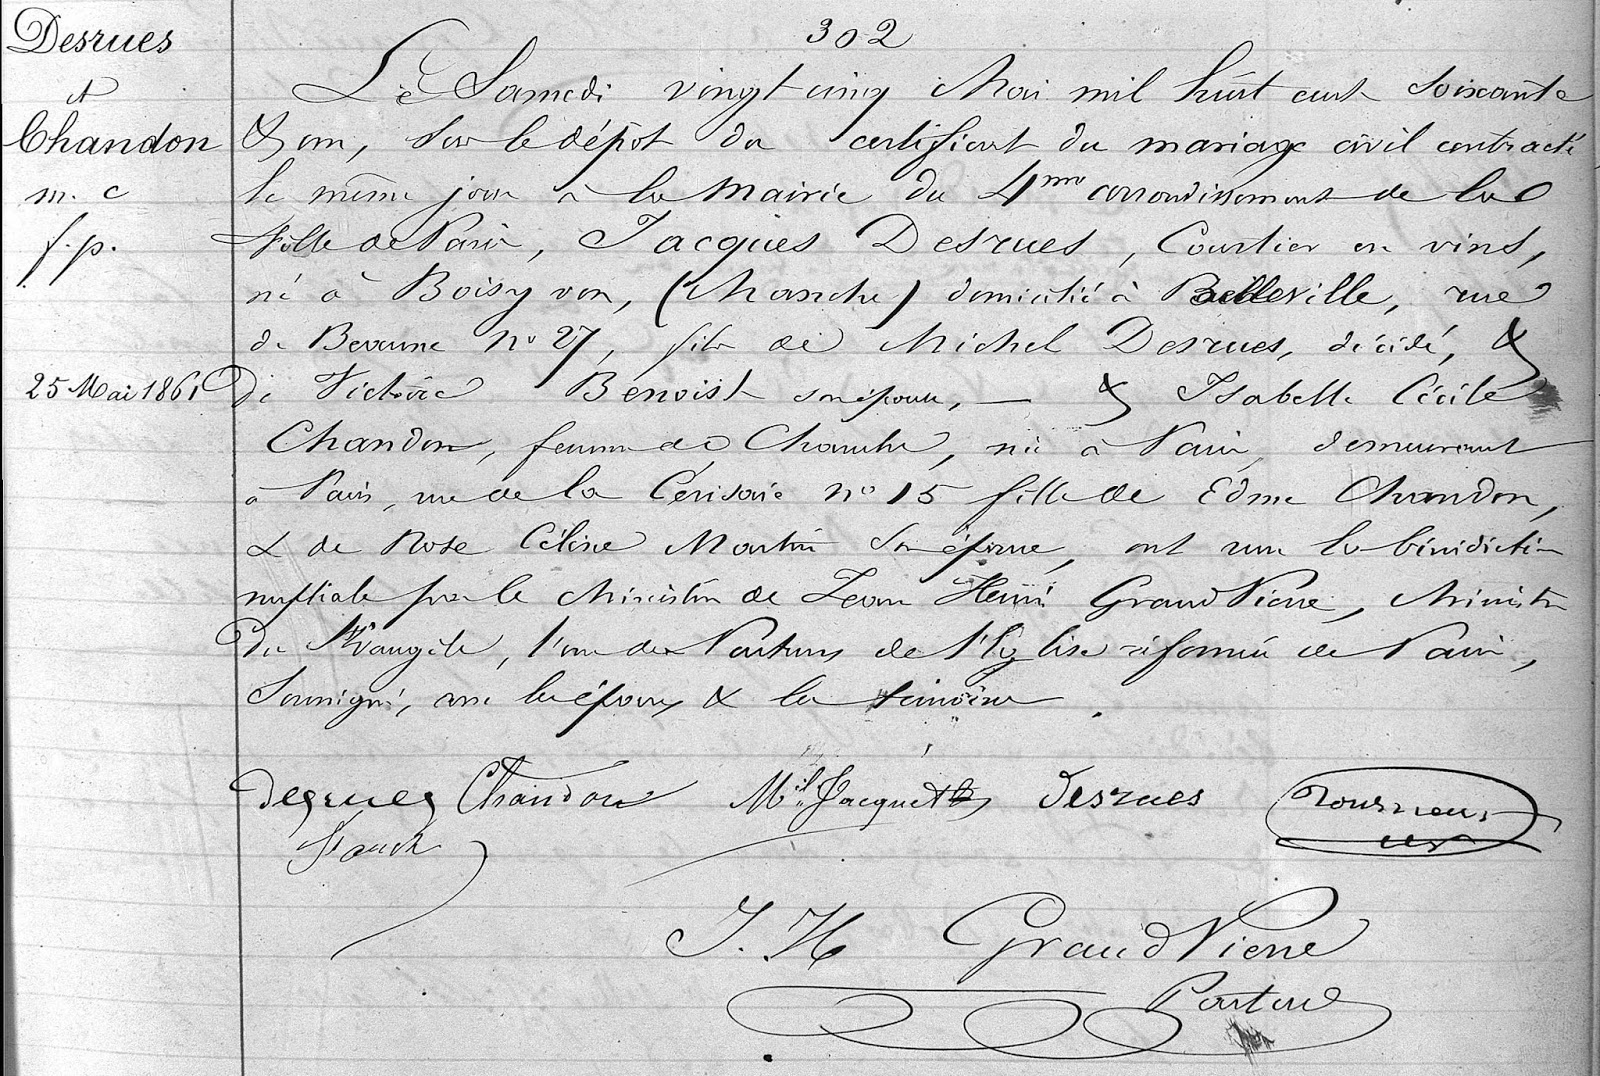 302
Desrues
et
Chandon
m. c
f. p.
25 Mai 1861
Le Samedi vingt cinq Mai mil huit cent soixante
& un, sur le dépot du certificat du mariage civil contracté
le même jour à la Mairie du 4me arrondissement de la
Ville de Paris, Jacques Desrues, Courtier en vins,
né à Boisyvon, (Manche) domicilié à Belleville, rue
de Beaune no 27, fils de Michel Desrues, décédé, &
de Victoire Benoist son épouse, — & Isabelle Cécile
Chandon, femme de Chambre, née à Paris, demeurant
à Paris, rue de la Cerisaie no 15 fille de Edme Chandon,
& de Rose Céline Martin son épouse, ont reçu la bénédiction
nuptiale par le Ministère de Jean Henri GrandPierre, Ministre
du St Evangile, l'un des Pasteurs de l'Eglise réformée de Paris,
Soussigné, avec les époux & les témoins.
desrues Chandon Mil Jacquet Desrues Tourneur
J. H GrandPierre
Pasteur